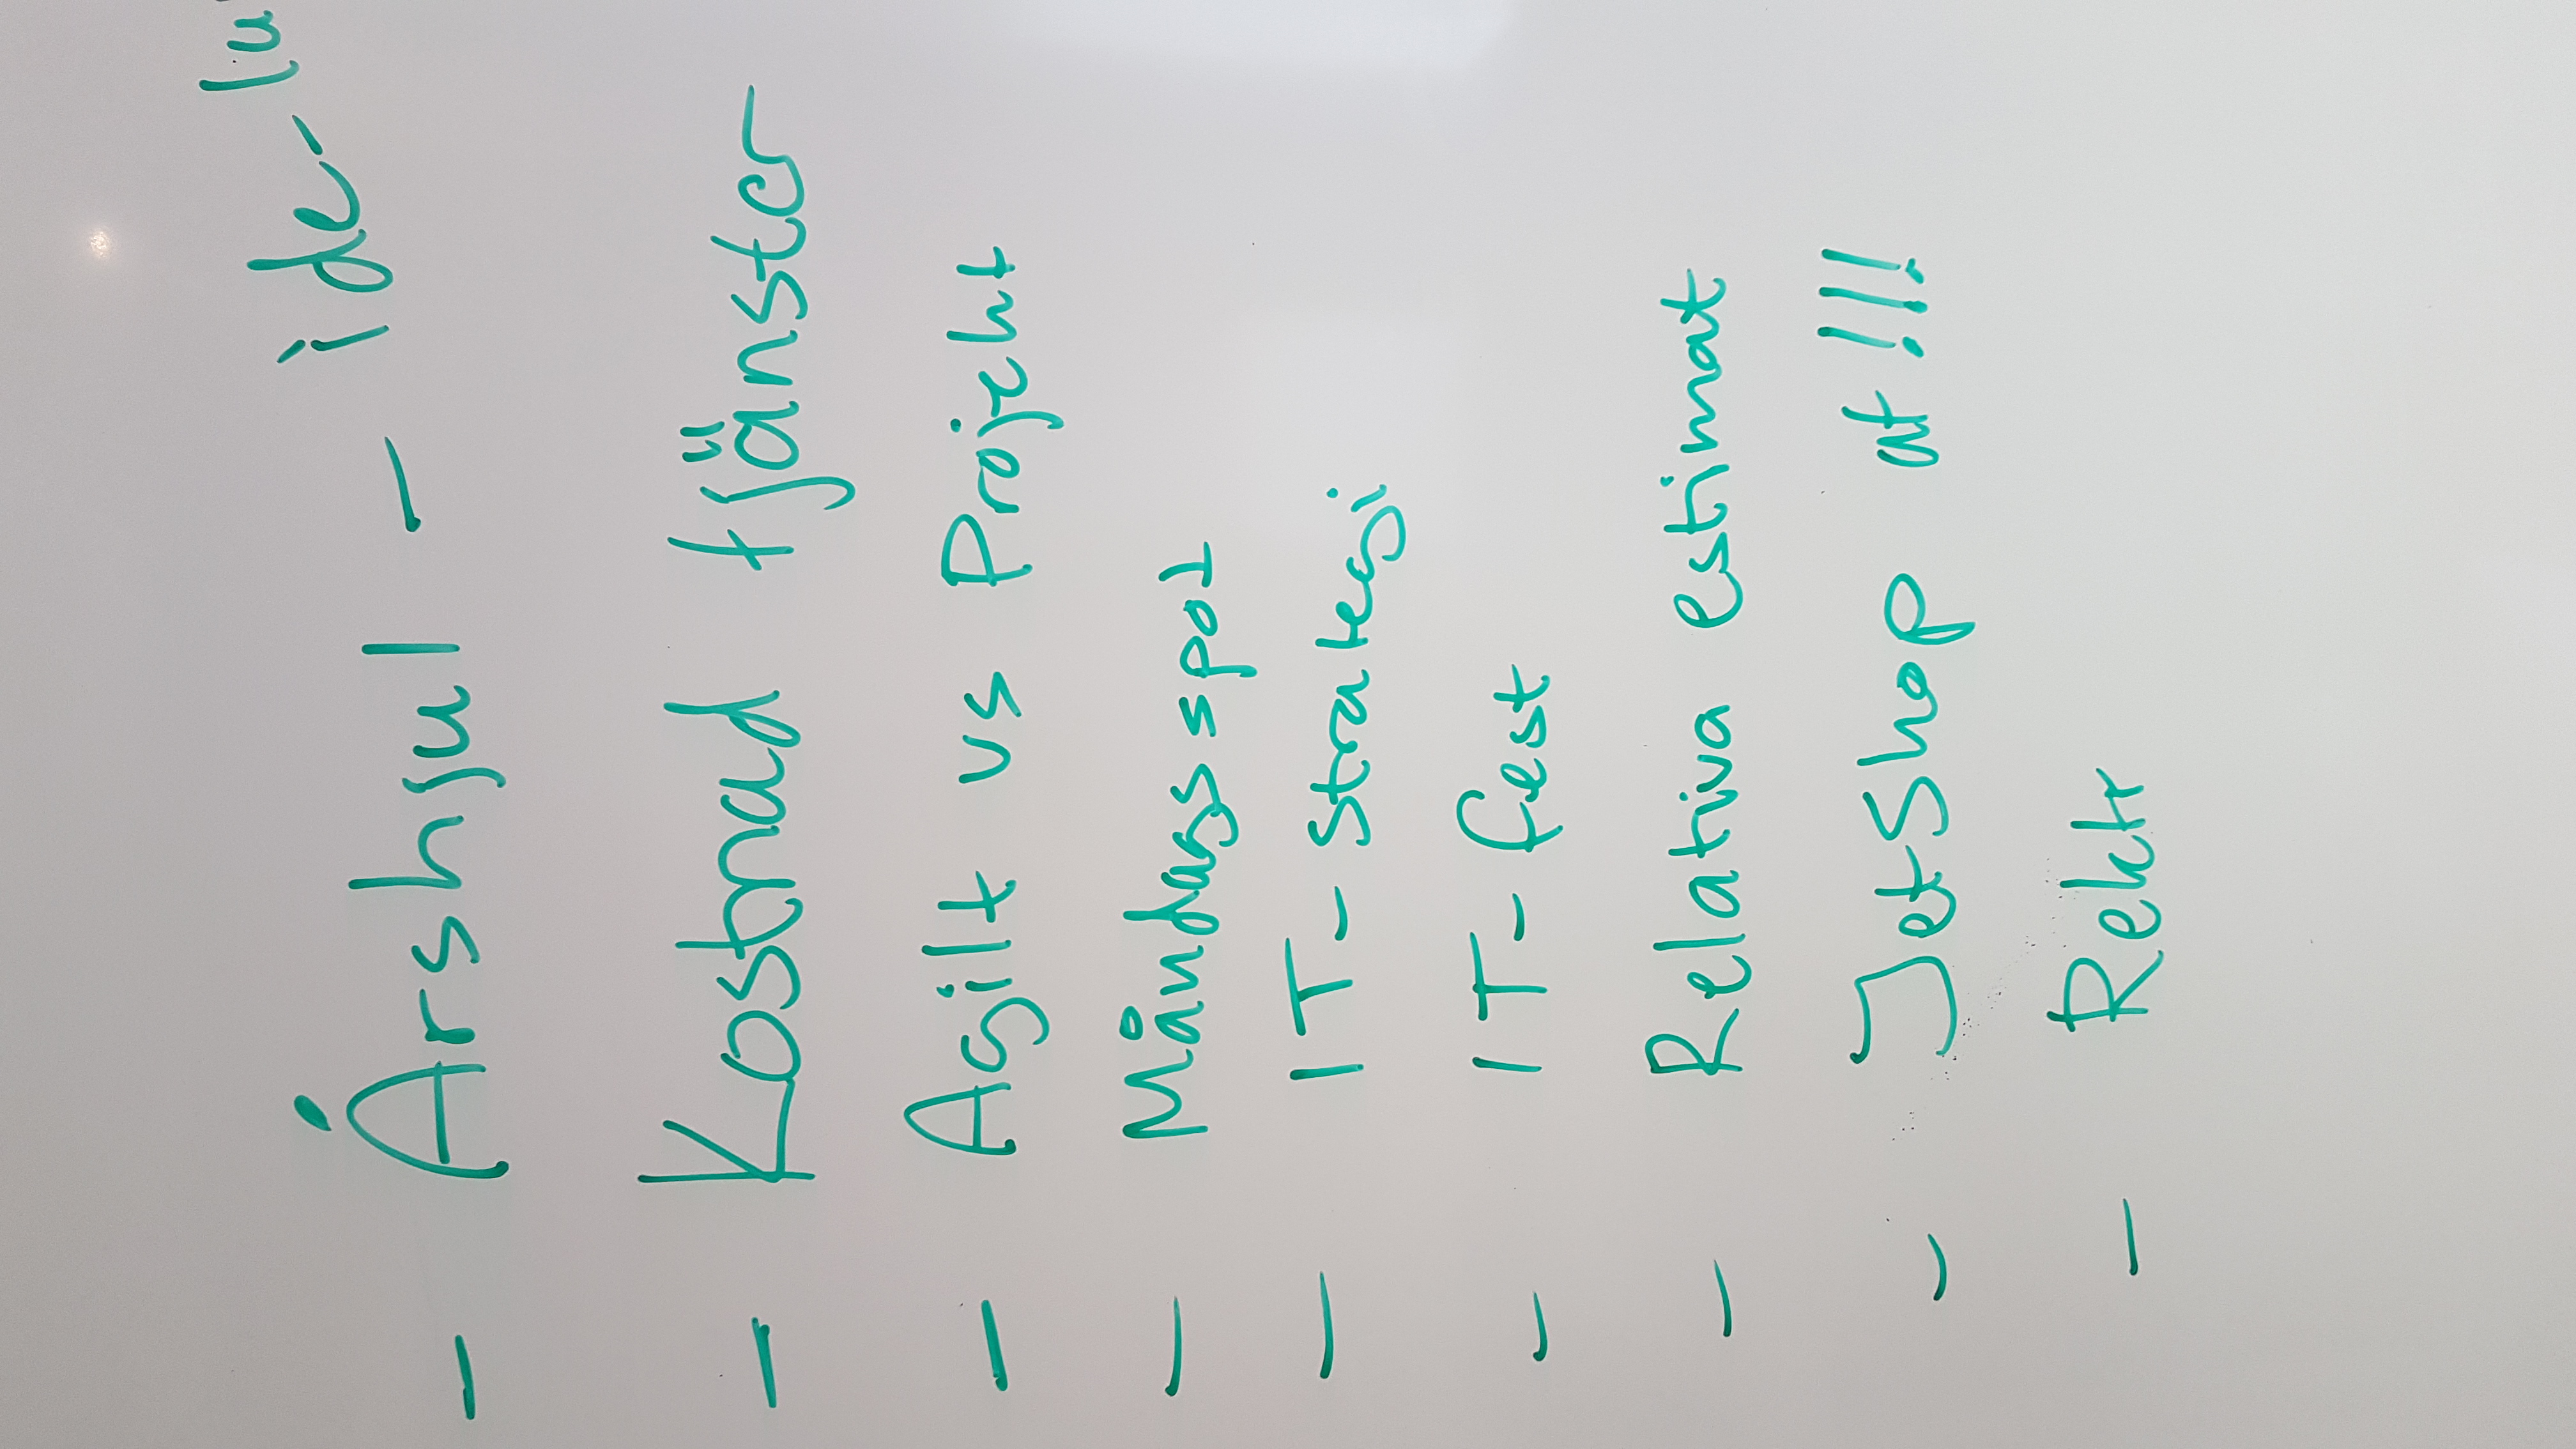 - Årshjul - ide-
- Kostnad tjänster
- Agilt vs Projekt
- Måndagsspot
- IT-Strategi
- IT-fest
- Relativa estimat
- JetShop at!!!
- Rekr